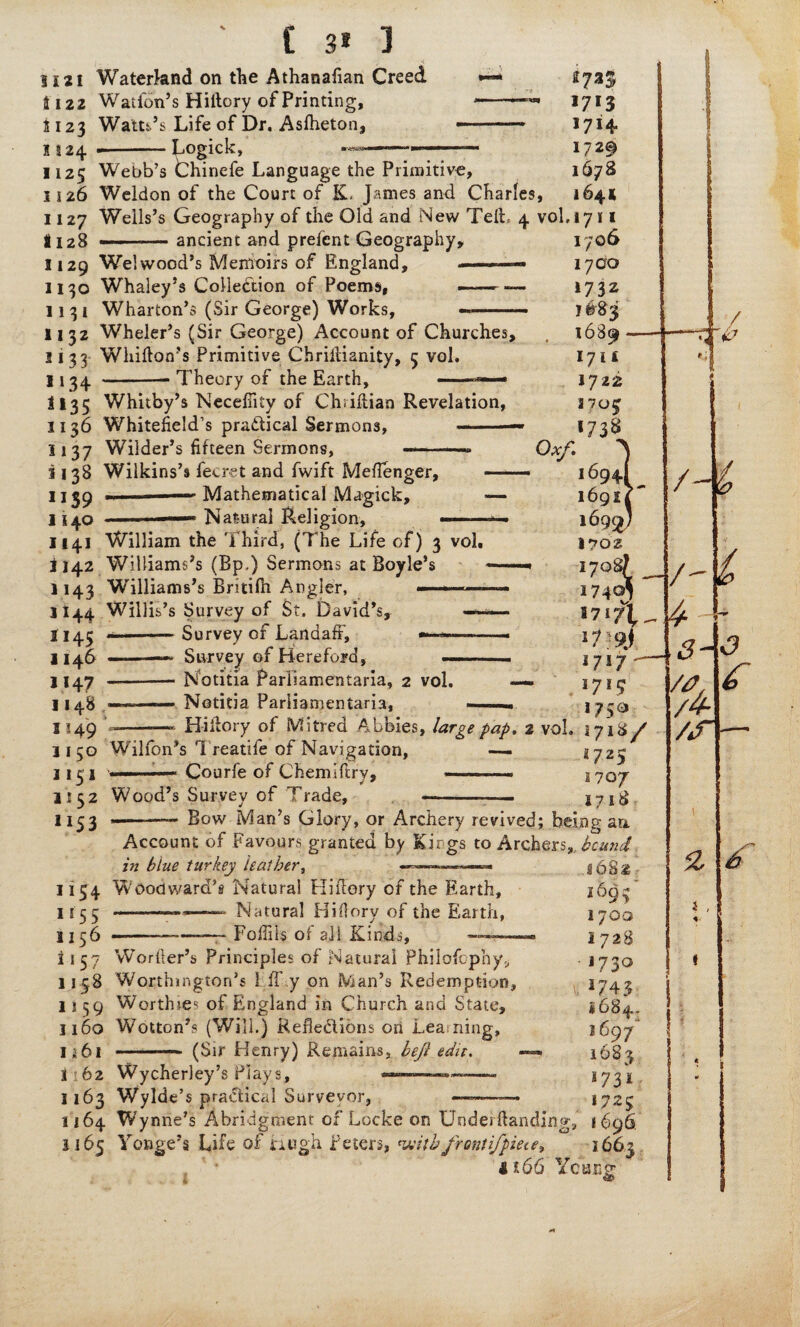 [ 31 ]
1121 Waterland on the Athanaſian Creed — 1723
1122 Watſon's Hiſtory of Printing, — 1713
1123 Watts's Life of Dr. Aſſheton, — 1714
1124 — Logick, — 1729
1125 Webb's Chineſe Language the Primitive, 1678
1126 Weldon of the Court of K. James and Charles, 1641
1127 Wells's Geography of the Old and New Teſt. 4 vol. 1711
1128 — ancient and preſent Geography, 1706
1129 Welwood's Memoirs of England, — 1700
1130 Whaley's Collection of Poems, — 1732
1131 Wharton's (Sir George) Works, — 1683
1132 Wheler's (Sir George) Account of Churches, 1689 — 6
1133 Whiſton's Primitive Chriſtianity, 5 vol. 1711
1134 — Theory of the Earth, — 1722
1135 Whitby's Neceſſity of Chriſtian Revelation, 1705
1136 Whitefield's practical Sermons, — 1738
1137 Wilder's fifteen Sermons, — Oxf.
1138 Wilkins's ſecret and ſwift Meſſenger, — 1694
1139 — Mathematical Magick, — 1691 1 - 6
1140 — Natural Religion, — 1699
1141 William the Third, (The Life of) 3 vol. 1702
1142 Williams's (Bp.) Sermons at Boyle's — 1708
1143 Williams's Britiſh Angler, — 1740 1 - 6
1144 Willis's Survey of St. David's, — 1717
1145 — Survey of Landaff, — 1719 4 -
1146 — Survey of Hereford, — 1717 — 3 - 3
1147 — Notitia Parliamentaria, 2 vol. — 1715 10 6
1148 — Notitia Parliamentaria, — 1750 14
1149 — Hiſtory of Mitred Abbies, large pap. 2 vol. 1718 / 15 —
1150 Wilſon's Treatiſe of Navigation, — 1725
1151 — Courſe of Chemiſtry, — 1707
1152 Wood's Survey of Trade, — 1718
1153 — Bow Man's Glory, or Archery revived; being an
Account of Favours granted by Kings to Archers, bound
in blue turkey leather, — 1682 2 6
1154 Woodward's Natural Hiſtory of the Earth, 1695
1155 — Natural Hiſtory of the Earth, 1700
1156 — Foſſils of all Kinds, — 1728
1157 Worſter's Principles of Natural Philoſophy, 1730
1158 Worthington's Eſſay on Man's Redemption, 1743
1159 Worthies of England in Church and State, 1684
1160 Wotton's (Will.) Reflections on Learning, 1697
1161 — (Sir Henry) Remains, beſt edit. — 1683
1162 Wycherley's Plays, — 1731
1163 Wylde's practical Surveyor, — 1725
1164 Wynne's Abridgment of Locke on Underſtanding, 1696
1165 Yonge's Life of Hugh Peters, with frontiſpiece, 1663
1166 Young